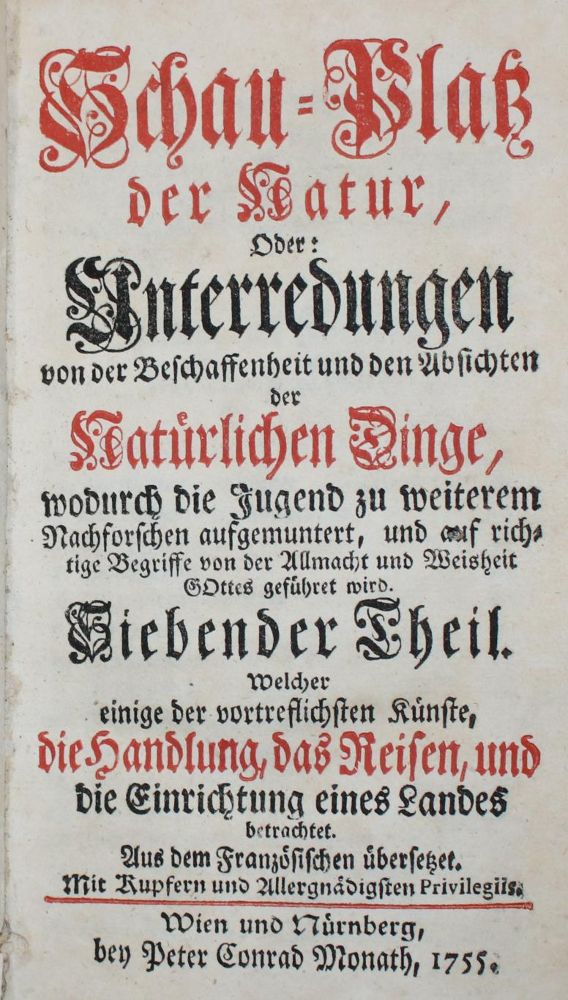 Schau-Platz
der Natur,
Oder:
Unterredungen
von der Beschaffenheit und den Absichten
der
Natürlichen Dinge,
wodurch die Jugend zu weiterem
Nachforschen aufgemuntert, und auf rich-
tige Begriffe von der Allmacht und Weisheit
GOttes geführet wird.
Siebender Theil.
Welcher
einige der vortreflichsten Künste,
die Handlung, das Reisen, und
die Einrichtung eines Landes
betrachtet.
Aus dem Französischen übersetzet.
Mit Kupfern und Allergnädigsten Privilegiis.
Wien und Nürnberg,
bey Peter Conrad Monath, 1755.